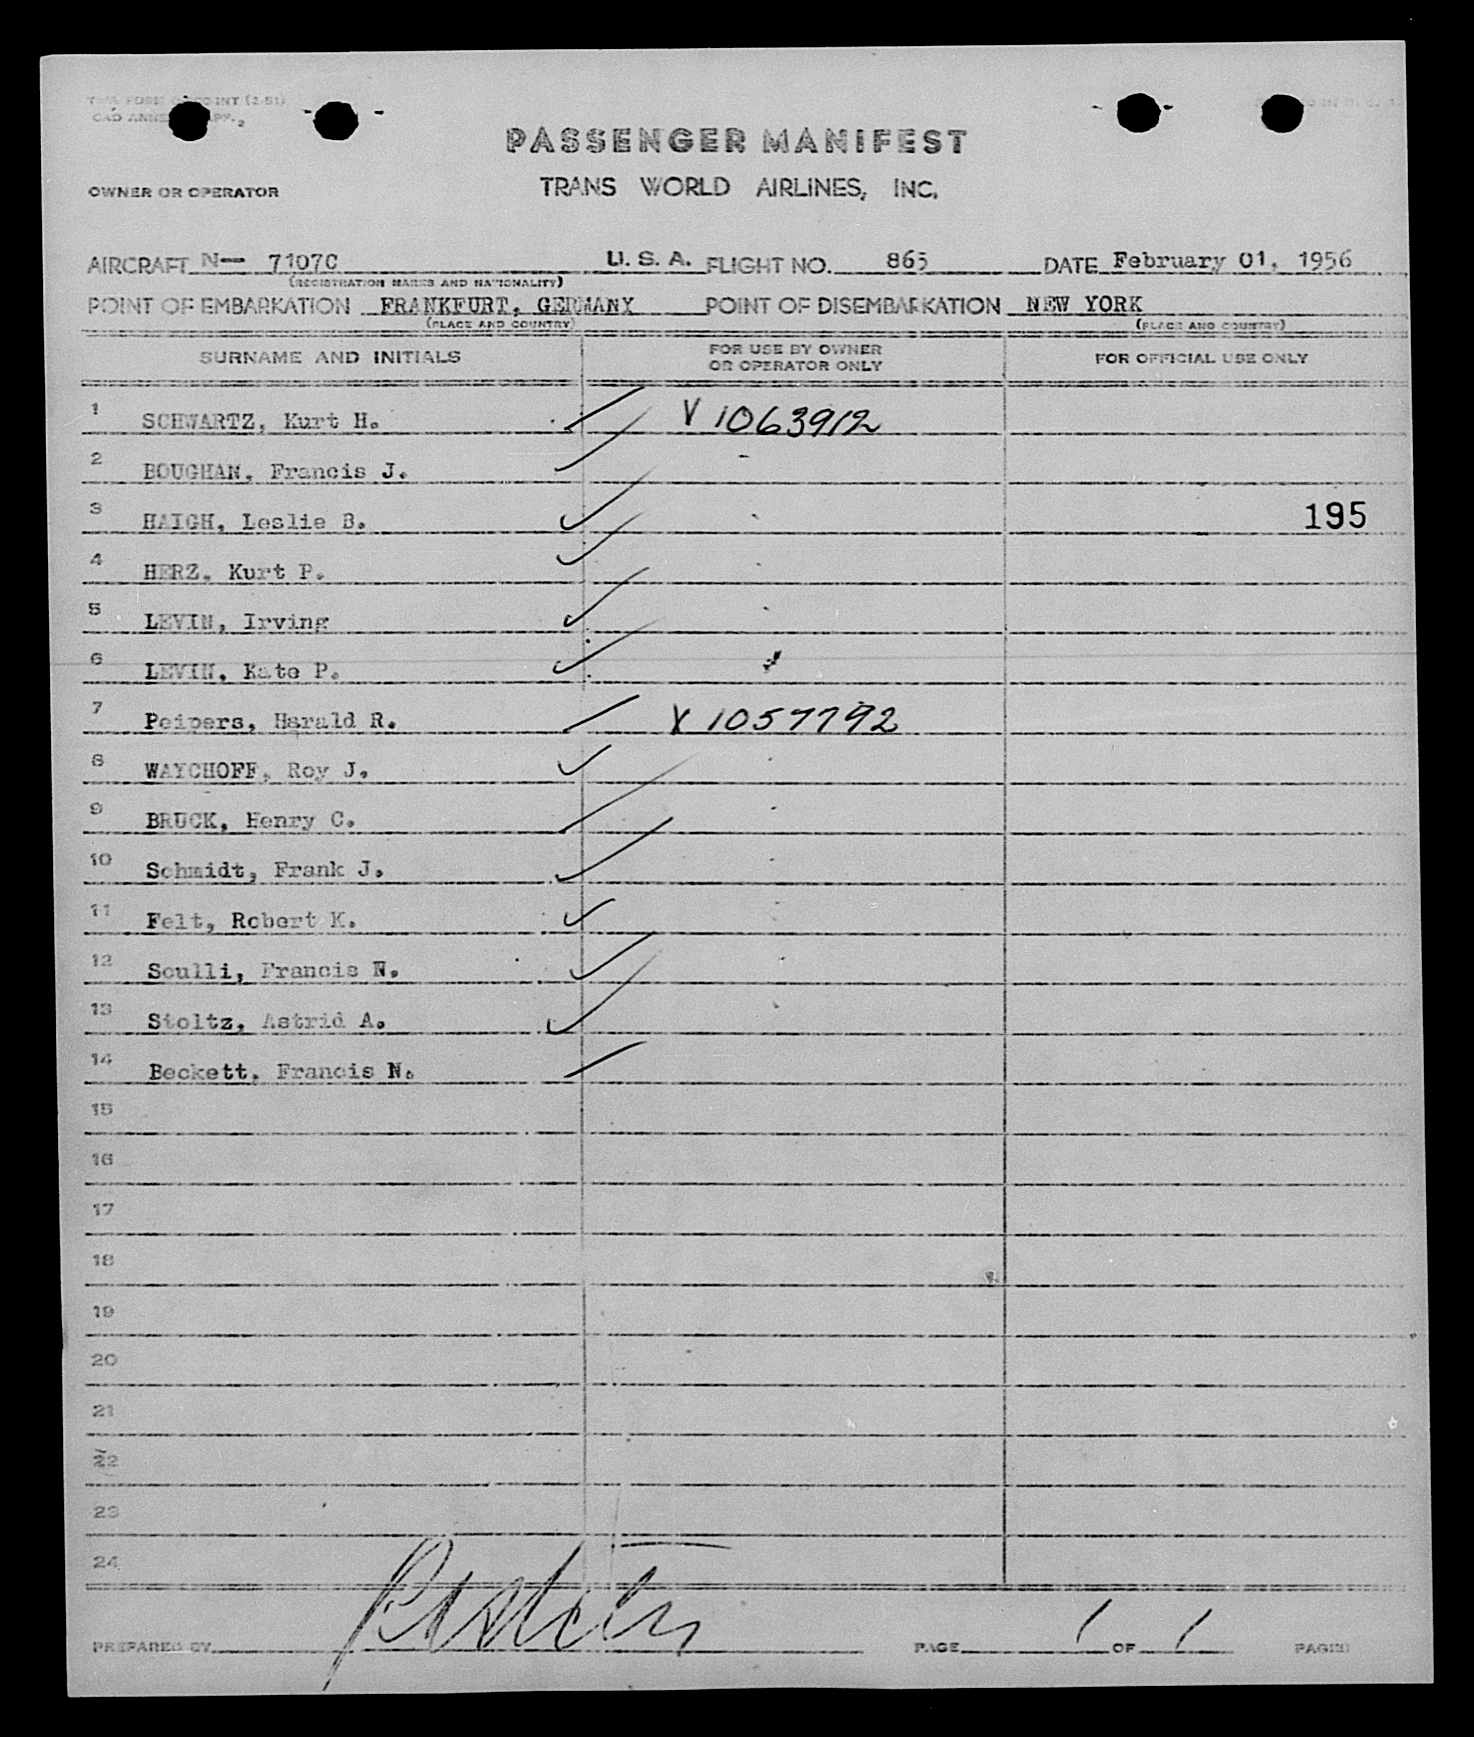 PASSENGER MANIFEST
OWNER OR OPERATOR TRANS WORLD AIRLINES, INC.
AIRCRAFT N— 7107C U.S.A. FLIGHT NO. 865 DATE February 01, 1956
(REGISTRATION MARKS AND NATIONALITY)
POINT OF EMBARKATION FRANKFURT, GERMANY POINT OF DISEMBARKATION NEW YORK
(PLACE AND COUNTRY) (PLACE AND COUNTRY)
SURNAME AND INITIALS FOR USE BY OWNER OR OPERATOR ONLY FOR OFFICIAL USE ONLY
1 SCHWARTZ, Kurt H. V 1063912
2 BOUGHAN, Francis J.
3 HAIGH, Leslie B. 195
4 HERZ, Kurt P.
5 LEVIN, Irving
6 LEVIN, Kate P.
7 Peipers, Harald R. V 1057792
8 WAYCHOFF, Roy J.
9 BRUCK, Henry C.
10 Schmidt, Frank J.
11 Felt, Robert K.
12 Sculli, Francis N.
13 Stoltz, Astrid A.
14 Beckett, Francis N.
15
16
17
18
19
20
21
22
23
24
PREPARED BY PAGE 1 OF 1 PAGES